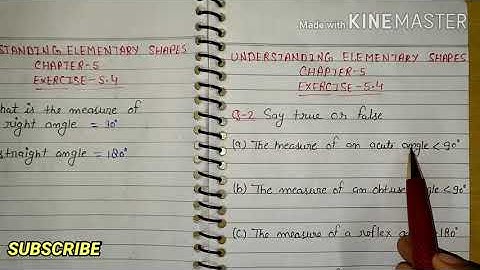 Made with KINEMASTER
STANDING ELEMENTARY SHAPES
CHAPTER-5
EXERCISE-5.4
hat is the measure of
right angle = 90°
straight angle = 180°
UNDERSTANDING ELEMENTARY SHAPES
CHAPTER-5
EXERCISE-5.4
Q-2 Say true or false
(a) The measure of an acute angle < 90°
(b) The measure of an obtuse gle < 90°
(C) The measure of a reflex 180°
SUBSCRIBE